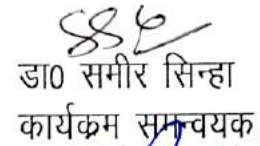 डा0 समीर सिन्हा
कार्यक्रम समन्वयक